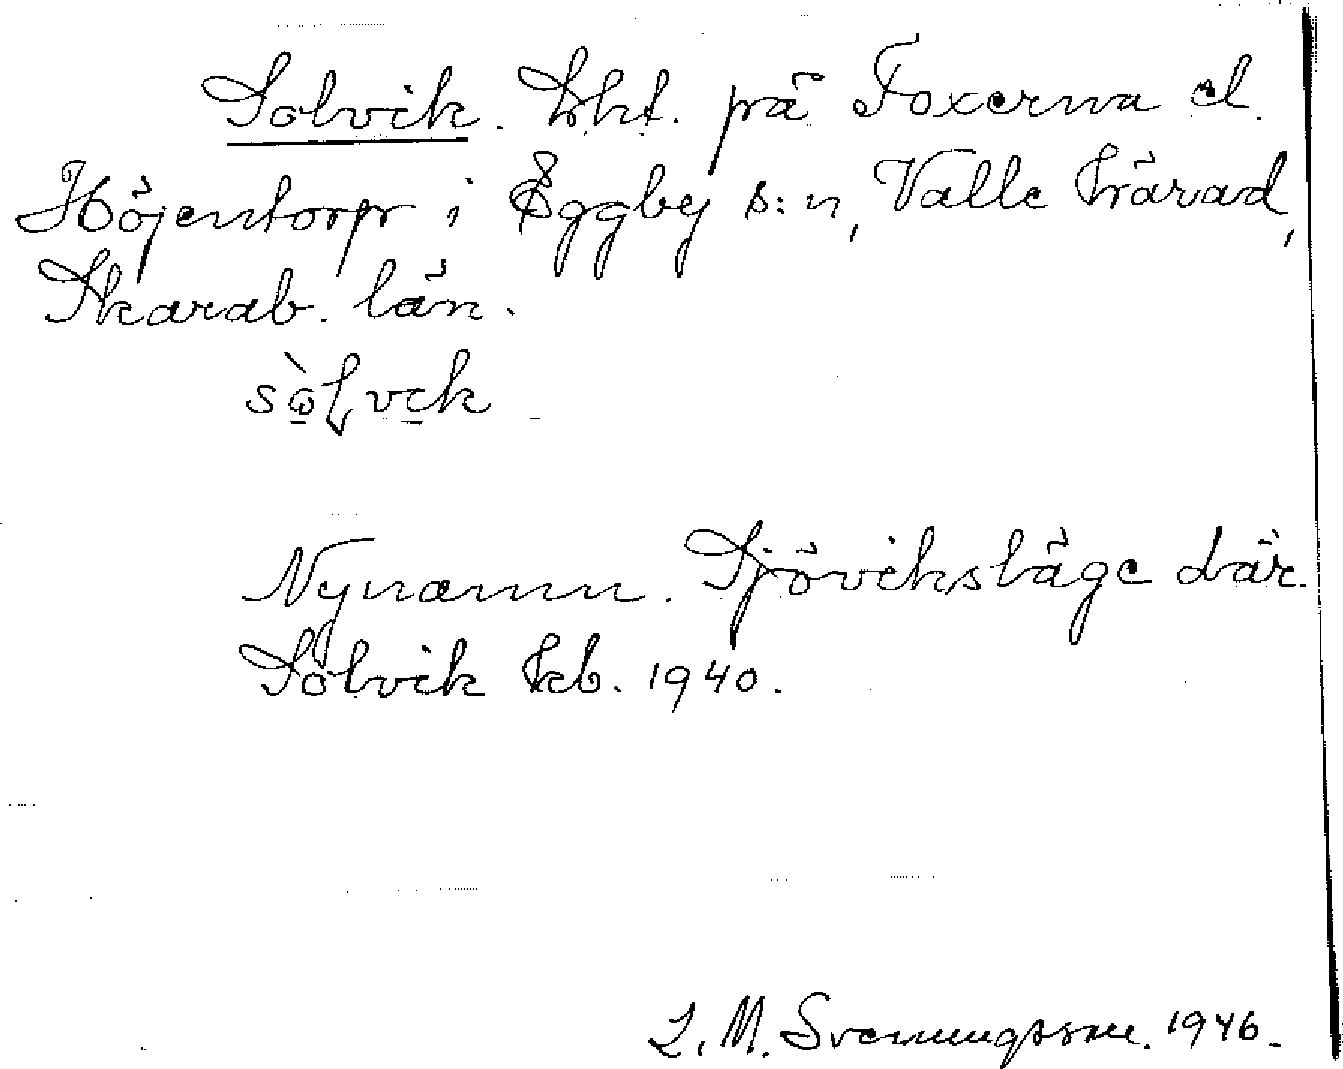 Solvik. Lht. på Foxerna el.
Höjentorp i Eggby s:n, Valle härad,
Skarab. län.
sòlvek
Nynamn. Sjöviksläge där.
Solvik kb. 1940.
L. M. Svenungsson. 1946.